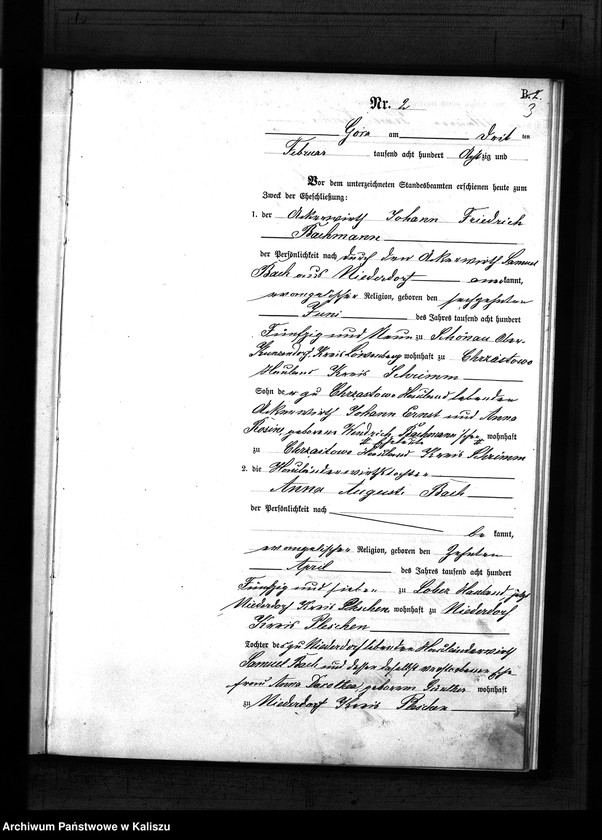 B. 2.
3
Nr. 2
Gora am Drit ten
Februar tausend acht hundert Achtzig und
Vor dem unterzeichneten Standesbeamten erschienen heute zum
Zweck der Eheschließung:
1. der Ackerwirth Johann Friedrich
Bachmann
der Persönlichkeit nach durch den Ackerwirth Samuel
Bach aus Niederdorf aner kannt,
evangelischer Religion, geboren den sechszehnten
Juni des Jahres tausend acht hundert
Fünfzig und Neun zu Schönau Ober-
Kunzendorf, Kreis Löwenberg wohnhaft zu Chrzastowo
Hauland Kreis Schrimm
Sohn der zu Chrzastowo Hauland lebenden
Ackerwirth Johann Ernst und Anna
Rosine, geborene Bachmann'schen wohnhaft
Eheleute
zu Chrzastowo Hauland Kreis Schrimm
2. die Hauländerwirthstochter
Anna August. Bach
der Persönlichkeit nach
be kannt,
evangelischer Religion, geboren den Zehnten
April des Jahres tausend acht hundert
Fünfzig und sieben zu Hauland jetzt
Niederdorf Kreis Pleschen wohnhaft zu Niederdorf
Kreis Pleschen
Tochter des zu Niederdorf lebenden Hauländerwirth
Samuel Bach und dessen daselbst verstorbenen Ehe
frau Anna Dorothea, geborene Günther wohnhaft
zu Niederdorf Kreis Pleschen
Archiwum Państwowe w Kaliszu